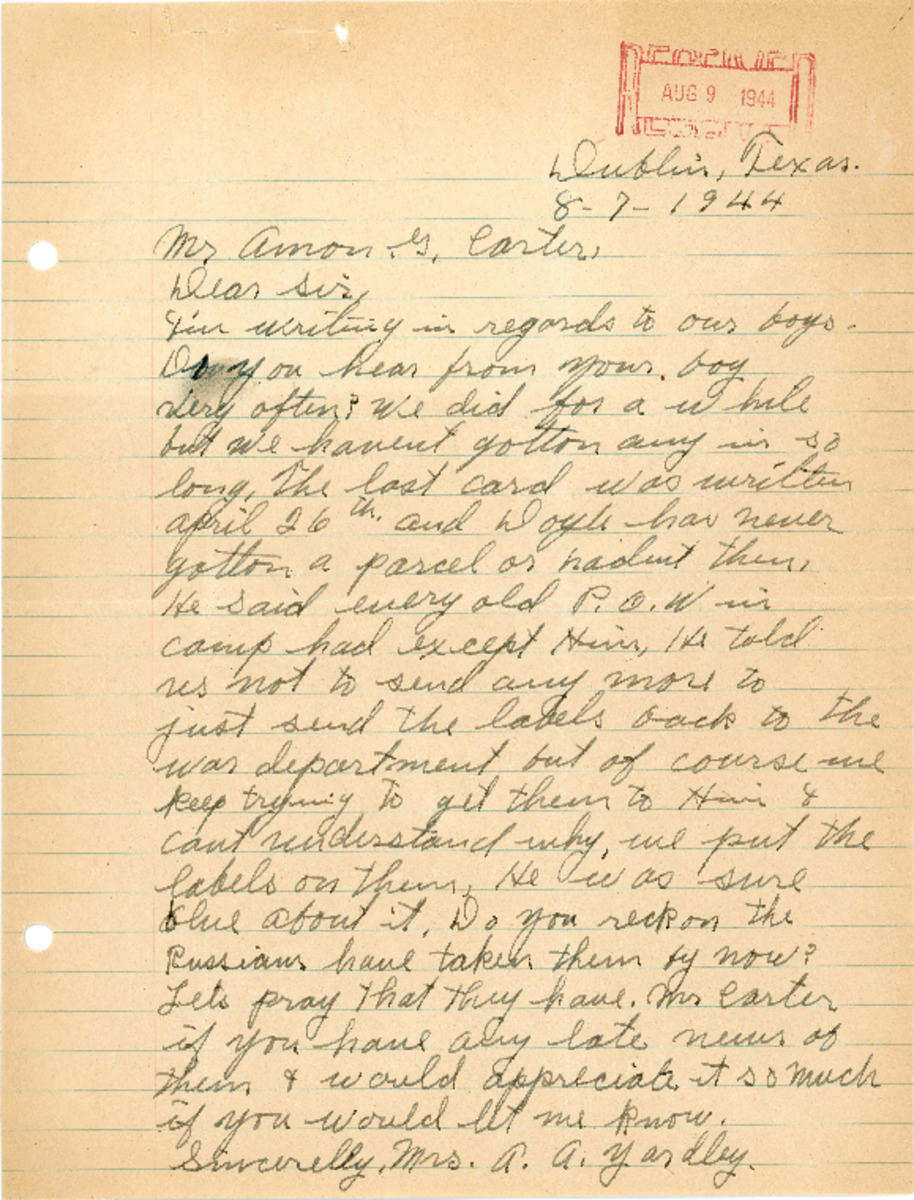 AUG 9 1944
Dublin, Texas.
8-7-1944
Mr Amon G. Carter,
Dear Sir,
I'm writing in regards to our boys.
Do you hear from your boy
very often? We did for a while
but we havent gotton any in so
long, The last card was written
april 26th. and Doyle has never
gotton a parcel or hadent then,
He said every old P.O.W in
camp had except Him, He told
us not to send any more to
just send the labels back to the
war department but of course we
keep trying to get them to Him &
cant understand why, we put the
labels on them, He was sure
blue about it. Do you reckon the
Russians have taken them by now?
Lets pray that they have. Mr Carter
if you have any late news of
them I would appreciate it so much
if you would let me know.
Sincerelly, Mrs. A. A. Yardley.